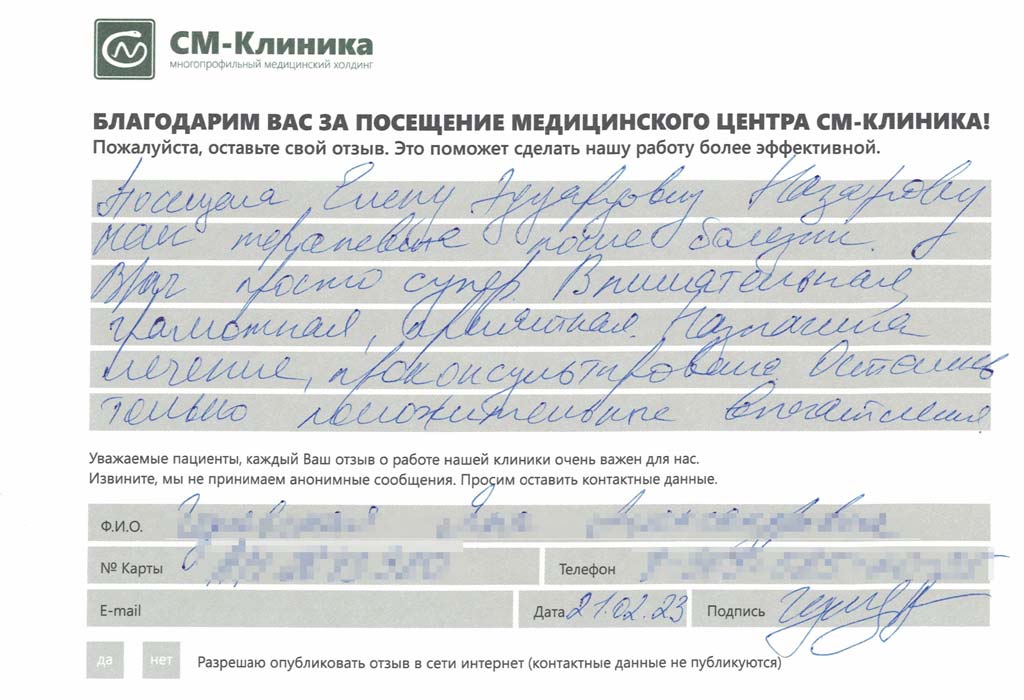 СМ-Клиника
многопрофильный медицинский холдинг
БЛАГОДАРИМ ВАС ЗА ПОСЕЩЕНИЕ МЕДИЦИНСКОГО ЦЕНТРА СМ-КЛИНИКА!
Пожалуйста, оставьте свой отзыв. Это поможет сделать нашу работу более эффективной.
Посещала Елену Эдуардовну Назарову
как терапевта после болезни.
Врач просто супер. Внимательная
грамотная, приятная. Назначила
лечение, проконсультировала. Остались
только положительные впечатления
Уважаемые пациенты, каждый Ваш отзыв о работе нашей клиники очень важен для нас.
Извините, мы не принимаем анонимные сообщения. Просим оставить контактные данные.
Ф.И.О.
№ Карты Телефон
E-mail Дата 21.02.23 Подпись
да нет Разрешаю опубликовать отзыв в сети интернет (контактные данные не публикуются)